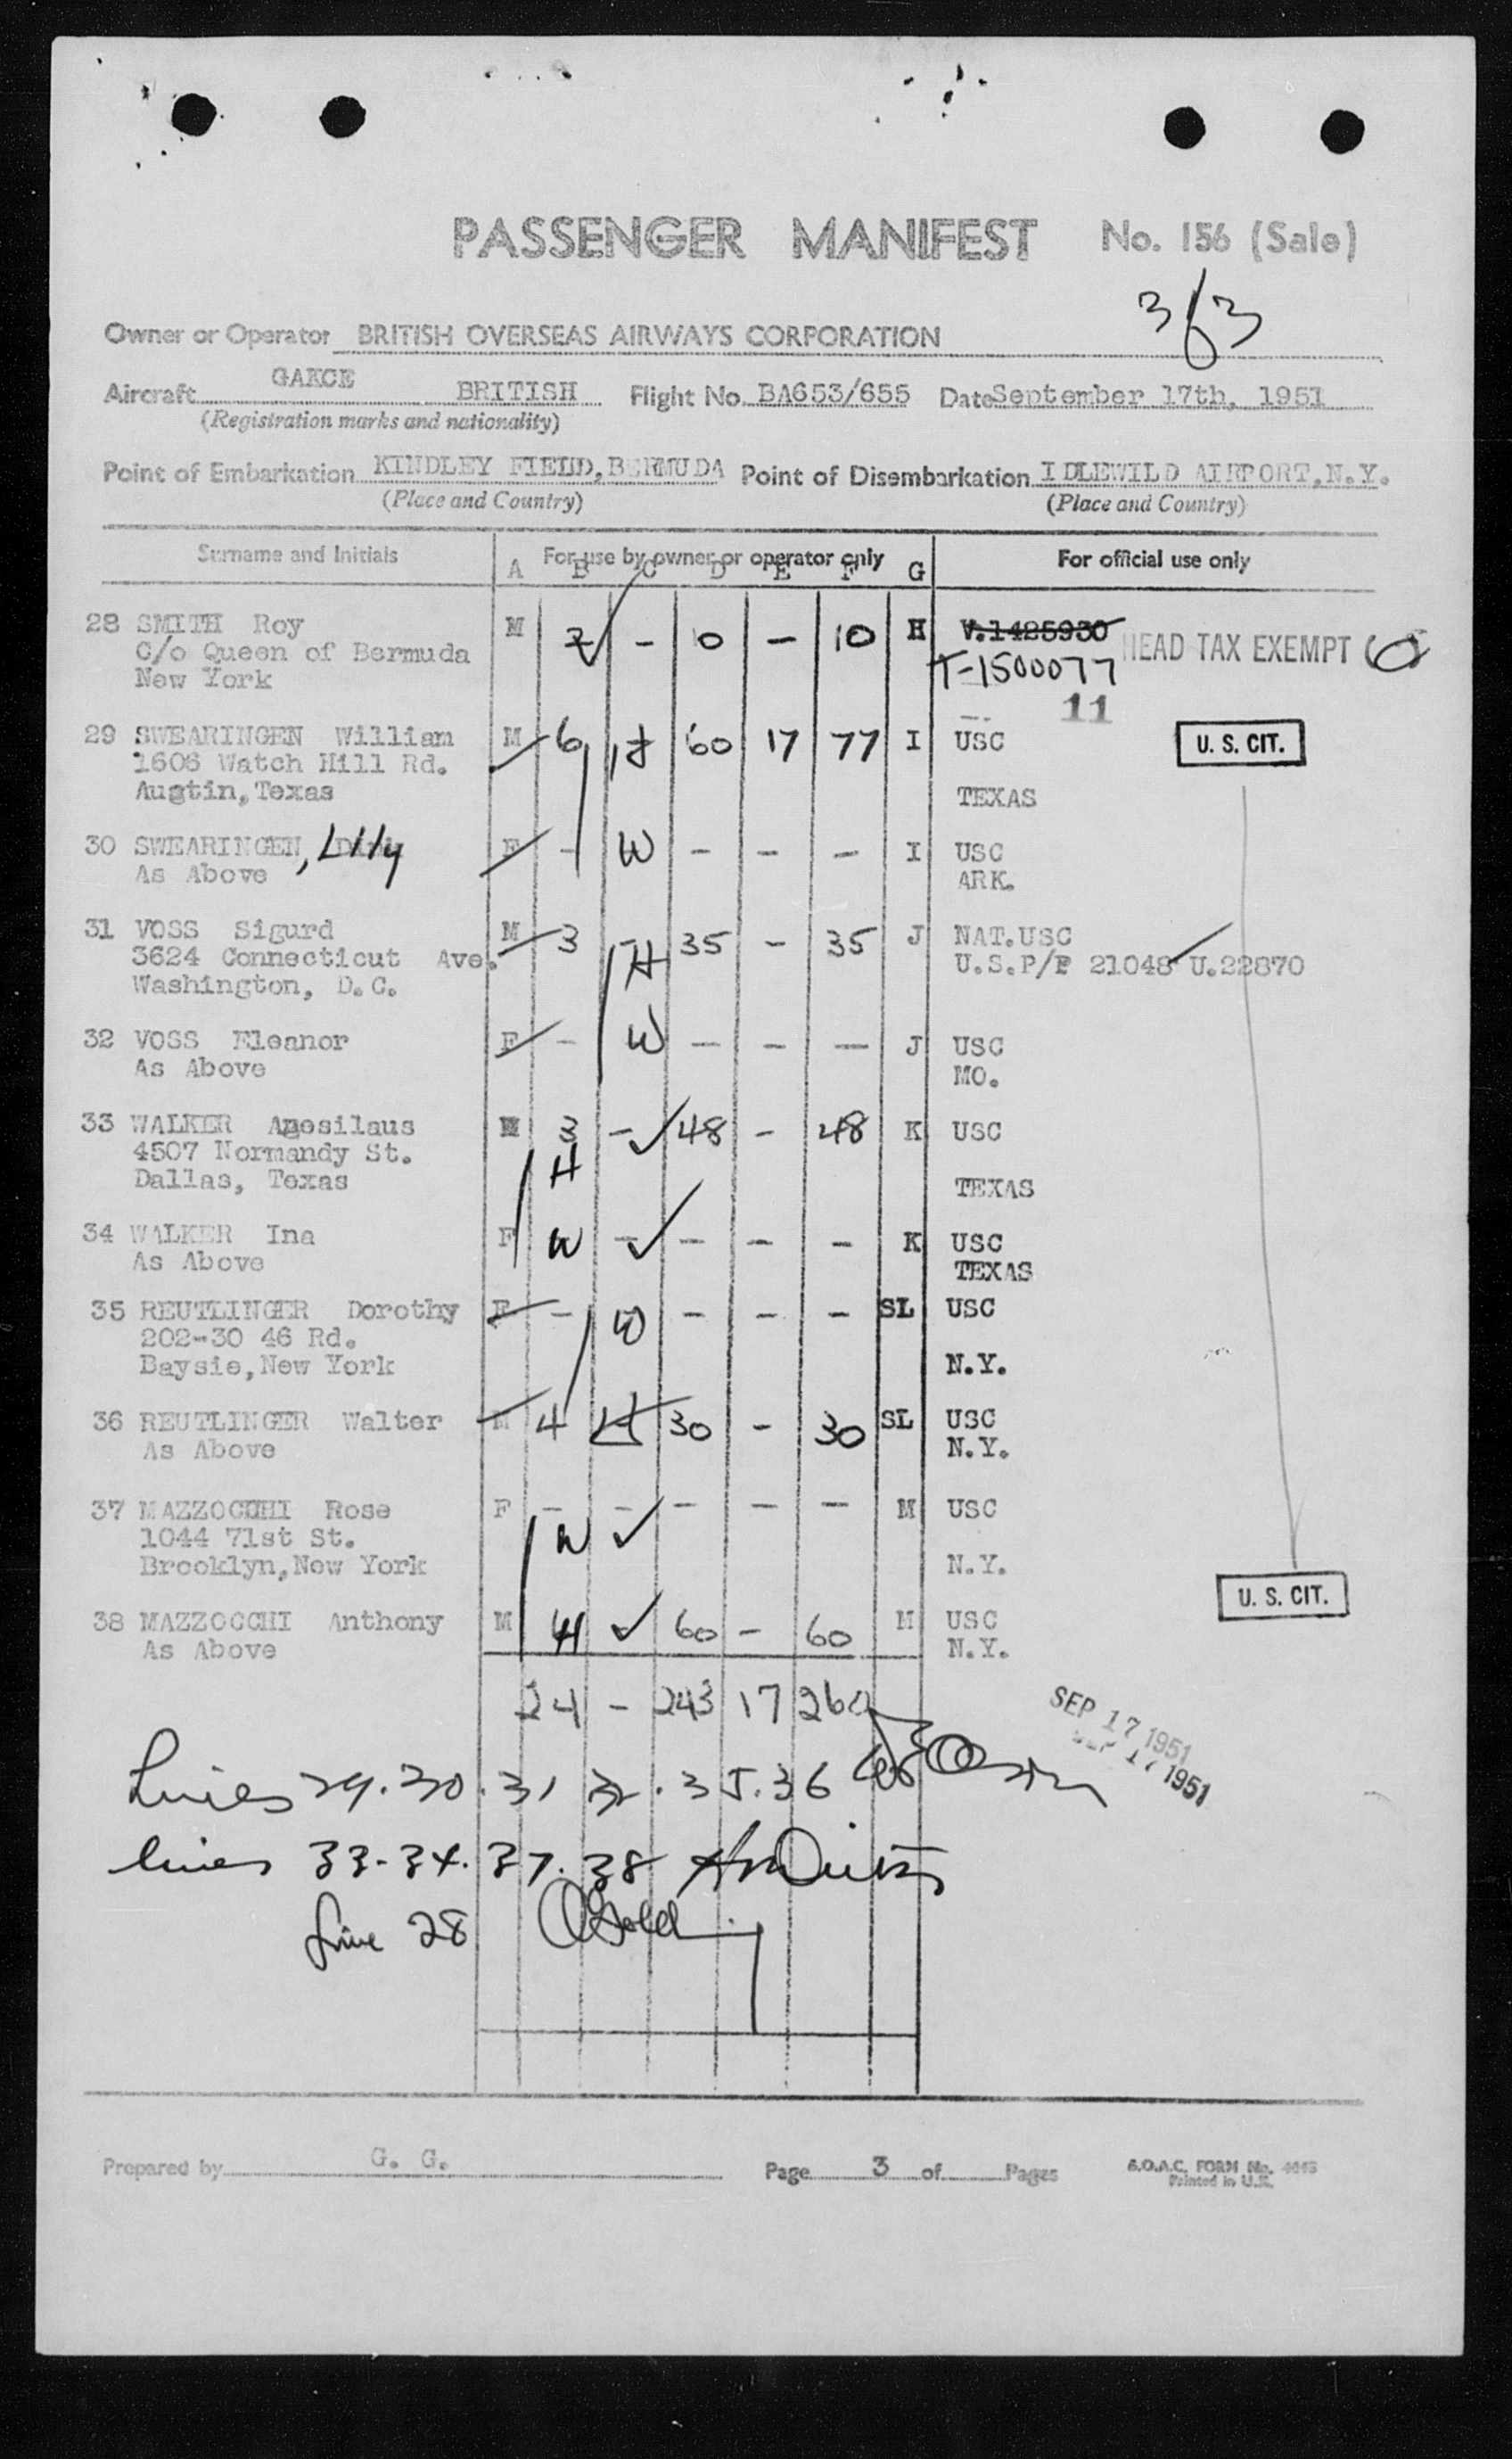 PASSENGER MANIFEST No. 156 (Sale)
3/3
Owner or Operator BRITISH OVERSEAS AIRWAYS CORPORATION
Aircraft GAKCE BRITISH Flight No. BA653/655 Date September 17th, 1951
(Registration marks and nationality)
Point of Embarkation KINDLEY FIELD, BERMUDA Point of Disembarkation IDLEWILD AIRPORT, N.Y.
(Place and Country) (Place and Country)
Surname and Initials For use by owner or operator only For official use only
A B C D E F G
28 SMITH Roy M 2 - 10 - 10 H V.1425930 HEAD TAX EXEMPT
C/o Queen of Bermuda T-1500077
New York 11
29 SWEARINGEN William M 6 H 60 17 77 I USC U. S. CIT.
1606 Watch Hill Rd.
Augtin, Texas TEXAS
30 SWEARINGEN, Lilly F - W - - - I USC
As Above ARK.
31 VOSS Sigurd M 3 - 35 - 35 J NAT.USC
3624 Connecticut Ave. H U.S.P/P 21048 U.22870
Washington, D.C.
32 VOSS Eleanor F - W - - - J USC
As Above MO.
33 WALKER Agesilaus M 3 - 48 - 48 K USC
4507 Normandy St. H
Dallas, Texas TEXAS
34 WALKER Ina F W - - - - K USC
As Above TEXAS
35 REUTLINGER Dorothy F - W - - - SL USC
202-30 46 Rd.
Baysie, New York N.Y.
36 REUTLINGER Walter M 4 H 30 - 30 SL USC
As Above N.Y.
37 MAZZOCCHI Rose F - - - - - M USC
1044 71st St. W
Brooklyn, New York N.Y.
38 MAZZOCCHI Anthony M H 60 - 60 M USC U. S. CIT.
As Above N.Y.
24 - 243 17 260
SEP 17 1951
SEP 17 1951
Lines 29. 30. 31 32. 35. 36
lines 33-34. 37. 38
Line 28
Prepared by G. G. Page 3 of Pages B.O.A.C. FORM No.
Printed in U.K.